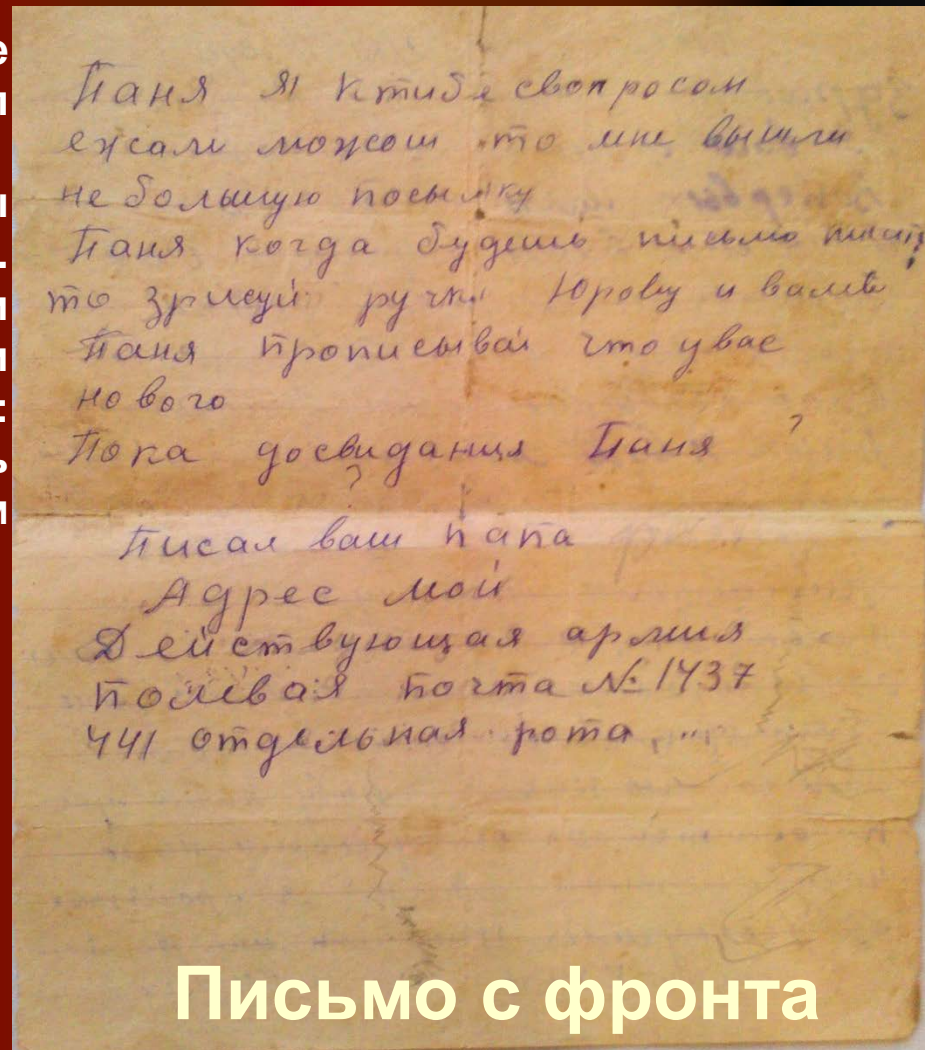 Паня Я Ктибе свопросом
ежали можош то мне вышли
не большую посылку
Паня когда будешь письмо писать
то зрисуй ручки Юрову и
Паня прописывай что увас
нового
Пока досвидания Паня
Писал ваш папа
Адрес мой
Действующая армия
полевая почта № 1437
441 отдельная рота
Письмо с фронта